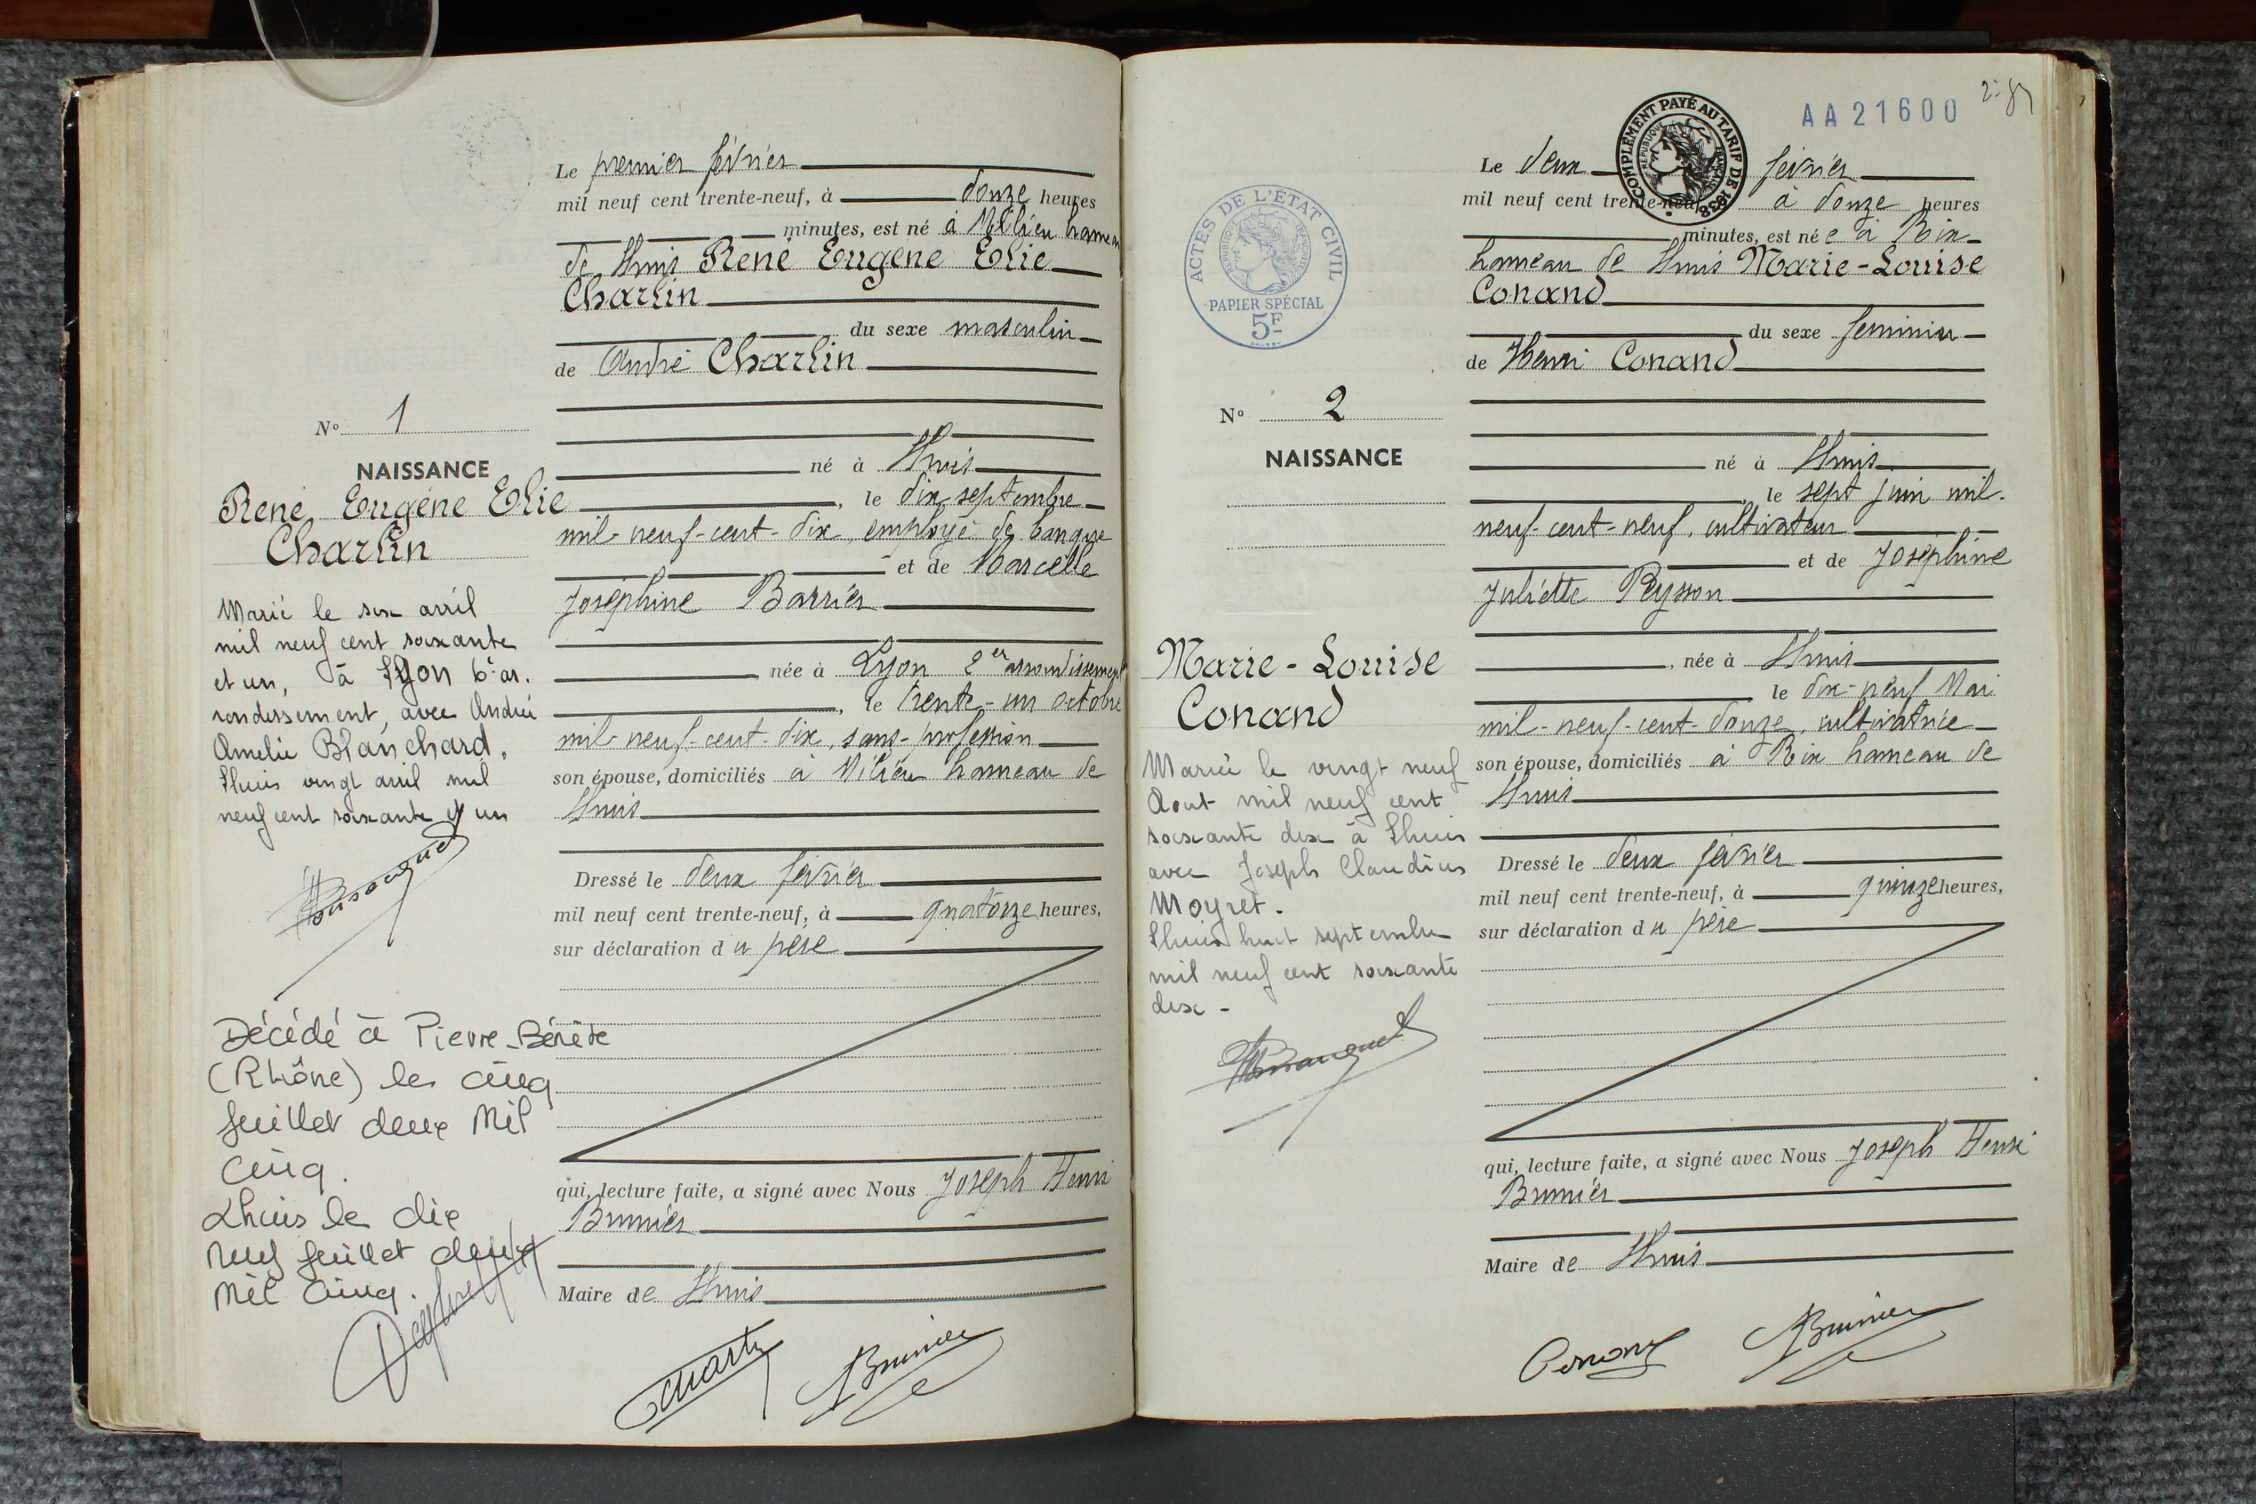 Le premier février
mil neuf cent trente-neuf, à douze heures
minutes, est né à Millieu hameau
de Lhuis René Eugène Elie
Charlin
du sexe masculin
de André Charlin
né à Lhuis
, le dix septembre
mil-neuf-cent-dix, employé de banque
et de Marcelle
Joséphine Barrier
née à Lyon 2er arrondissement
, le trente-un octobre
mil-neuf-cent-dix, sans-profession
son épouse, domiciliés à Millieu hameau de
Lhuis
Dressé le deux février
mil neuf cent trente-neuf, à quatorze heures,
sur déclaration du père
qui, lecture faite, a signé avec Nous Joseph Henri
Brunier
Maire de Lhuis
Brunier
No 1
NAISSANCE
René Eugène Elie
Charlin
Marié le six avril
mil neuf cent soixante
et un, à Lyon 6e ar.
rondissement, avec Andrée
Amélie Blanchard.
Lhuis vingt avril mil
neuf cent soixante et un
Décédé à Pierre-Bénite
(Rhône) le cinq
juillet deux mil
cinq.
Lhuis le dix
neuf juillet deux
mil cinq.
AA 21600
COMPLÉMENT PAYÉ AU TARIF DE 1938
RÉPUBLIQUE FRANÇAISE
Le deux février
mil neuf cent trente-neuf à douze heures
minutes, est née à Rix
hameau de Lhuis Marie-Louise
Conand
du sexe féminin
de Henri Conand
né à Lhuis
, le sept juin mil-
neuf-cent-neuf, cultivateur
et de Joséphine
Juliette Peysson
, née à Lhuis
le dix-neuf Mai
mil-neuf-cent-douze, cultivatrice
son épouse, domiciliés à Rix hameau de
Lhuis
Dressé le deux février
mil neuf cent trente-neuf, à quinze heures,
sur déclaration du père
qui, lecture faite, a signé avec Nous Joseph Henri
Brunier
Maire de Lhuis
Brunier
ACTES DE L'ÉTAT CIVIL
RÉPUBLIQUE FRANÇAISE
PAPIER SPÉCIAL
5F
No 2
NAISSANCE
Marie-Louise
Conand
Mariée le vingt neuf
Aout mil neuf cent
soixante dix à Lhuis
avec Joseph Claudius
Moyret.
Lhuis huit septembre
mil neuf cent soixante
dix -